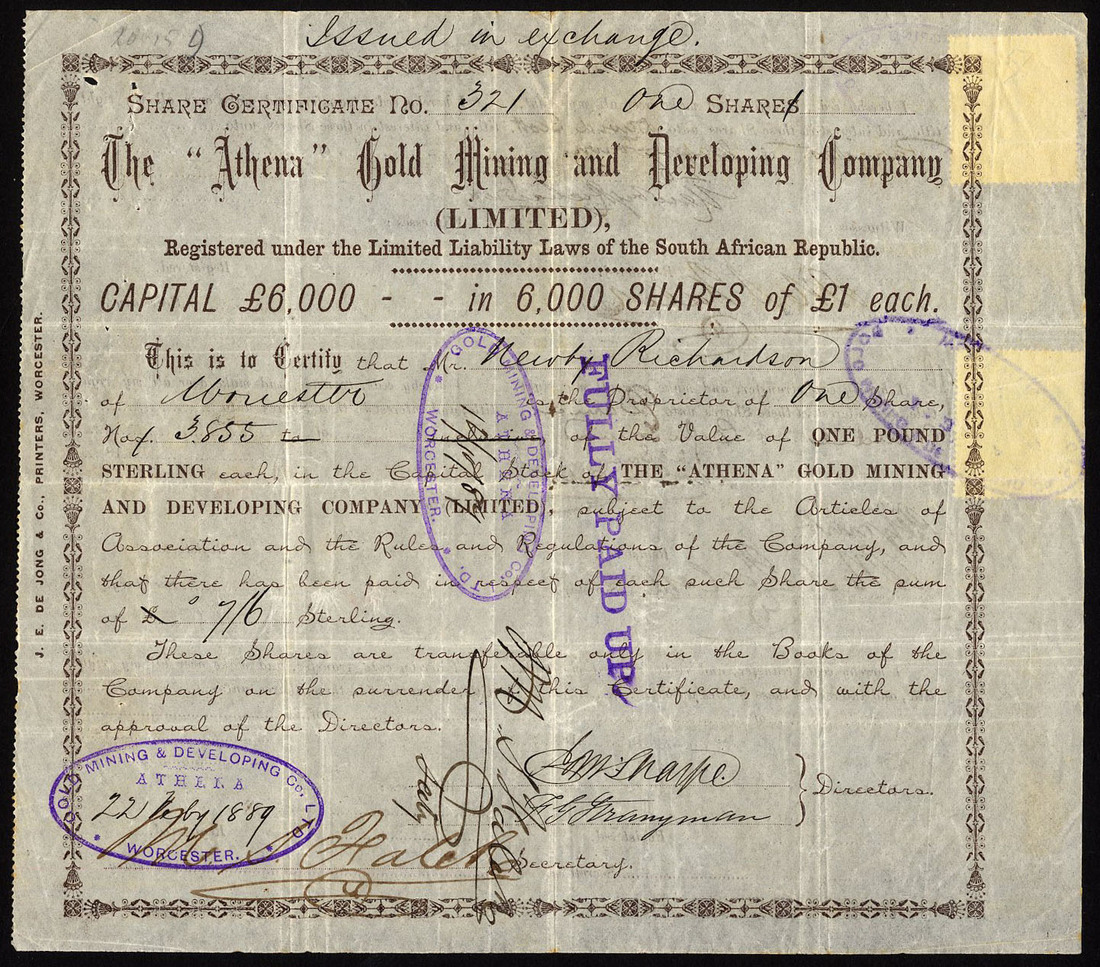 Issued in exchange.
SHARE CERTIFICATE NO. 321 One SHARES
The "Athena" Gold Mining and Developing Company
(LIMITED),
Registered under the Limited Liability Laws of the South African Republic.
CAPITAL £6,000 - - in 6,000 SHARES of £1 each.
This is to Certify that Mr. Newby Richardson
of Worcester is the Proprietor of One Share,
Nos. 3855 to inclusive, of the Value of ONE POUND
STERLING each, in the Capital Stock of THE "ATHENA" GOLD MINING
AND DEVELOPING COMPANY (LIMITED), subject to the Articles of
Association and the Rules and Regulations of the Company, and
that there has been paid in respect of each such Share the sum
of £ " 7/6 Sterling.
These Shares are transferable only in the Books of the
Company on the surrender of this Certificate, and with the
approval of the Directors.
Directors.
Secretary.
GOLD MINING & DEVELOPING Co. LTD.
ATHENA
22 Feby 1889
WORCESTER.
GOLD MINING & DEVELOPING Co. LTD.
ATHENA
WORCESTER.
FULLY PAID UP
J. E. DE JONG & Co., PRINTERS, WORCESTER.